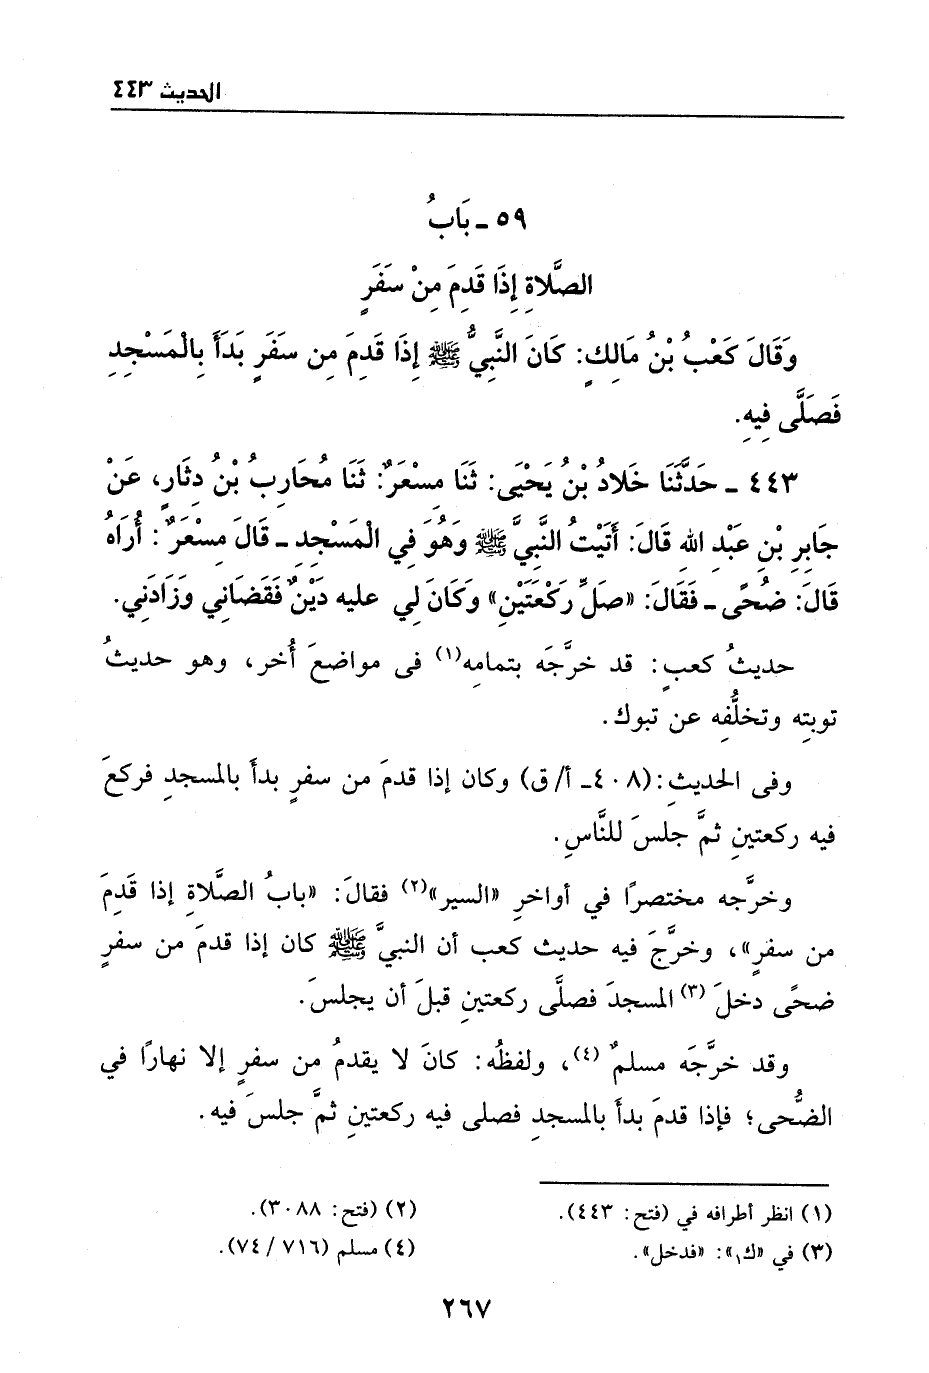 الحديث ٤٤٣
٥٩ - بَابُ
الصَّلَاةِ إِذَا قَدِمَ مِنْ سَفَرٍ
وَقَالَ كَعْبُ بْنُ مَالِكٍ: كَانَ النَّبِيُّ ﷺ إِذَا قَدِمَ مِن سَفَرٍ بَدَأَ بِالْمَسْجِدِ
فَصَلَّى فِيهِ.
٤٤٣ - حَدَّثَنَا خَلادُ بْنُ يَحْيَى: ثَنَا مِسْعَرٌ: ثَنَا مُحَارِبُ بْنُ دِثَارٍ، عَنْ
جَابِرِ بْنِ عَبْدِ اللهِ قَالَ: أَتَيْتُ النَّبِيَّ ﷺ وَهُوَ فِي الْمَسْجِدِ - قَالَ مِسْعَرٌ: أُرَاهُ
قَالَ: ضُحًى - فَقَالَ: «صَلِّ رَكْعَتَيْنِ» وَكَانَ لِي عليه دَيْنٌ فَقَضَانِي وَزَادَنِي.
حديثُ كعبٍ: قد خرَّجَه بتمامِه(١) فى مواضعَ أُخر، وهو حديثُ
توبتِه وتخلُّفِه عن تبوك.
وفى الحديثِ: (٤٠٨- أ/ ق) وكان إذا قدمَ من سفرٍ بدأَ بالمسجدِ فركعَ
فيه ركعتينِ ثمَّ جلسَ للنَّاسِ.
وخرَّجه مختصرًا في أواخرِ «السير»(٢) فقالَ: «بابُ الصَّلاةِ إذا قَدِمَ
من سفرٍ»، وخرَّجَ فيه حديث كعب أن النبيَّ ﷺ كان إذا قدمَ من سفرٍ
ضحًى دخلَ(٣) المسجدَ فصلَّى ركعتينِ قبلَ أن يجلسَ.
وقد خرَّجَه مسلمٌ(٤)، ولفظُه: كانَ لا يقدمُ من سفرٍ إلا نهارًا في
الضُّحى؛ فإذا قدمَ بدأَ بالمسجدِ فصلى فيه ركعتينِ ثمَّ جلسَ فيه.
(١) انظر أطرافه في (فتح: ٤٤٣).
(٢) (فتح: ٣٠٨٨).
(٣) في «ك١»: «فدخل».
(٤) مسلم (٧١٦ / ٧٤).
٢٦٧